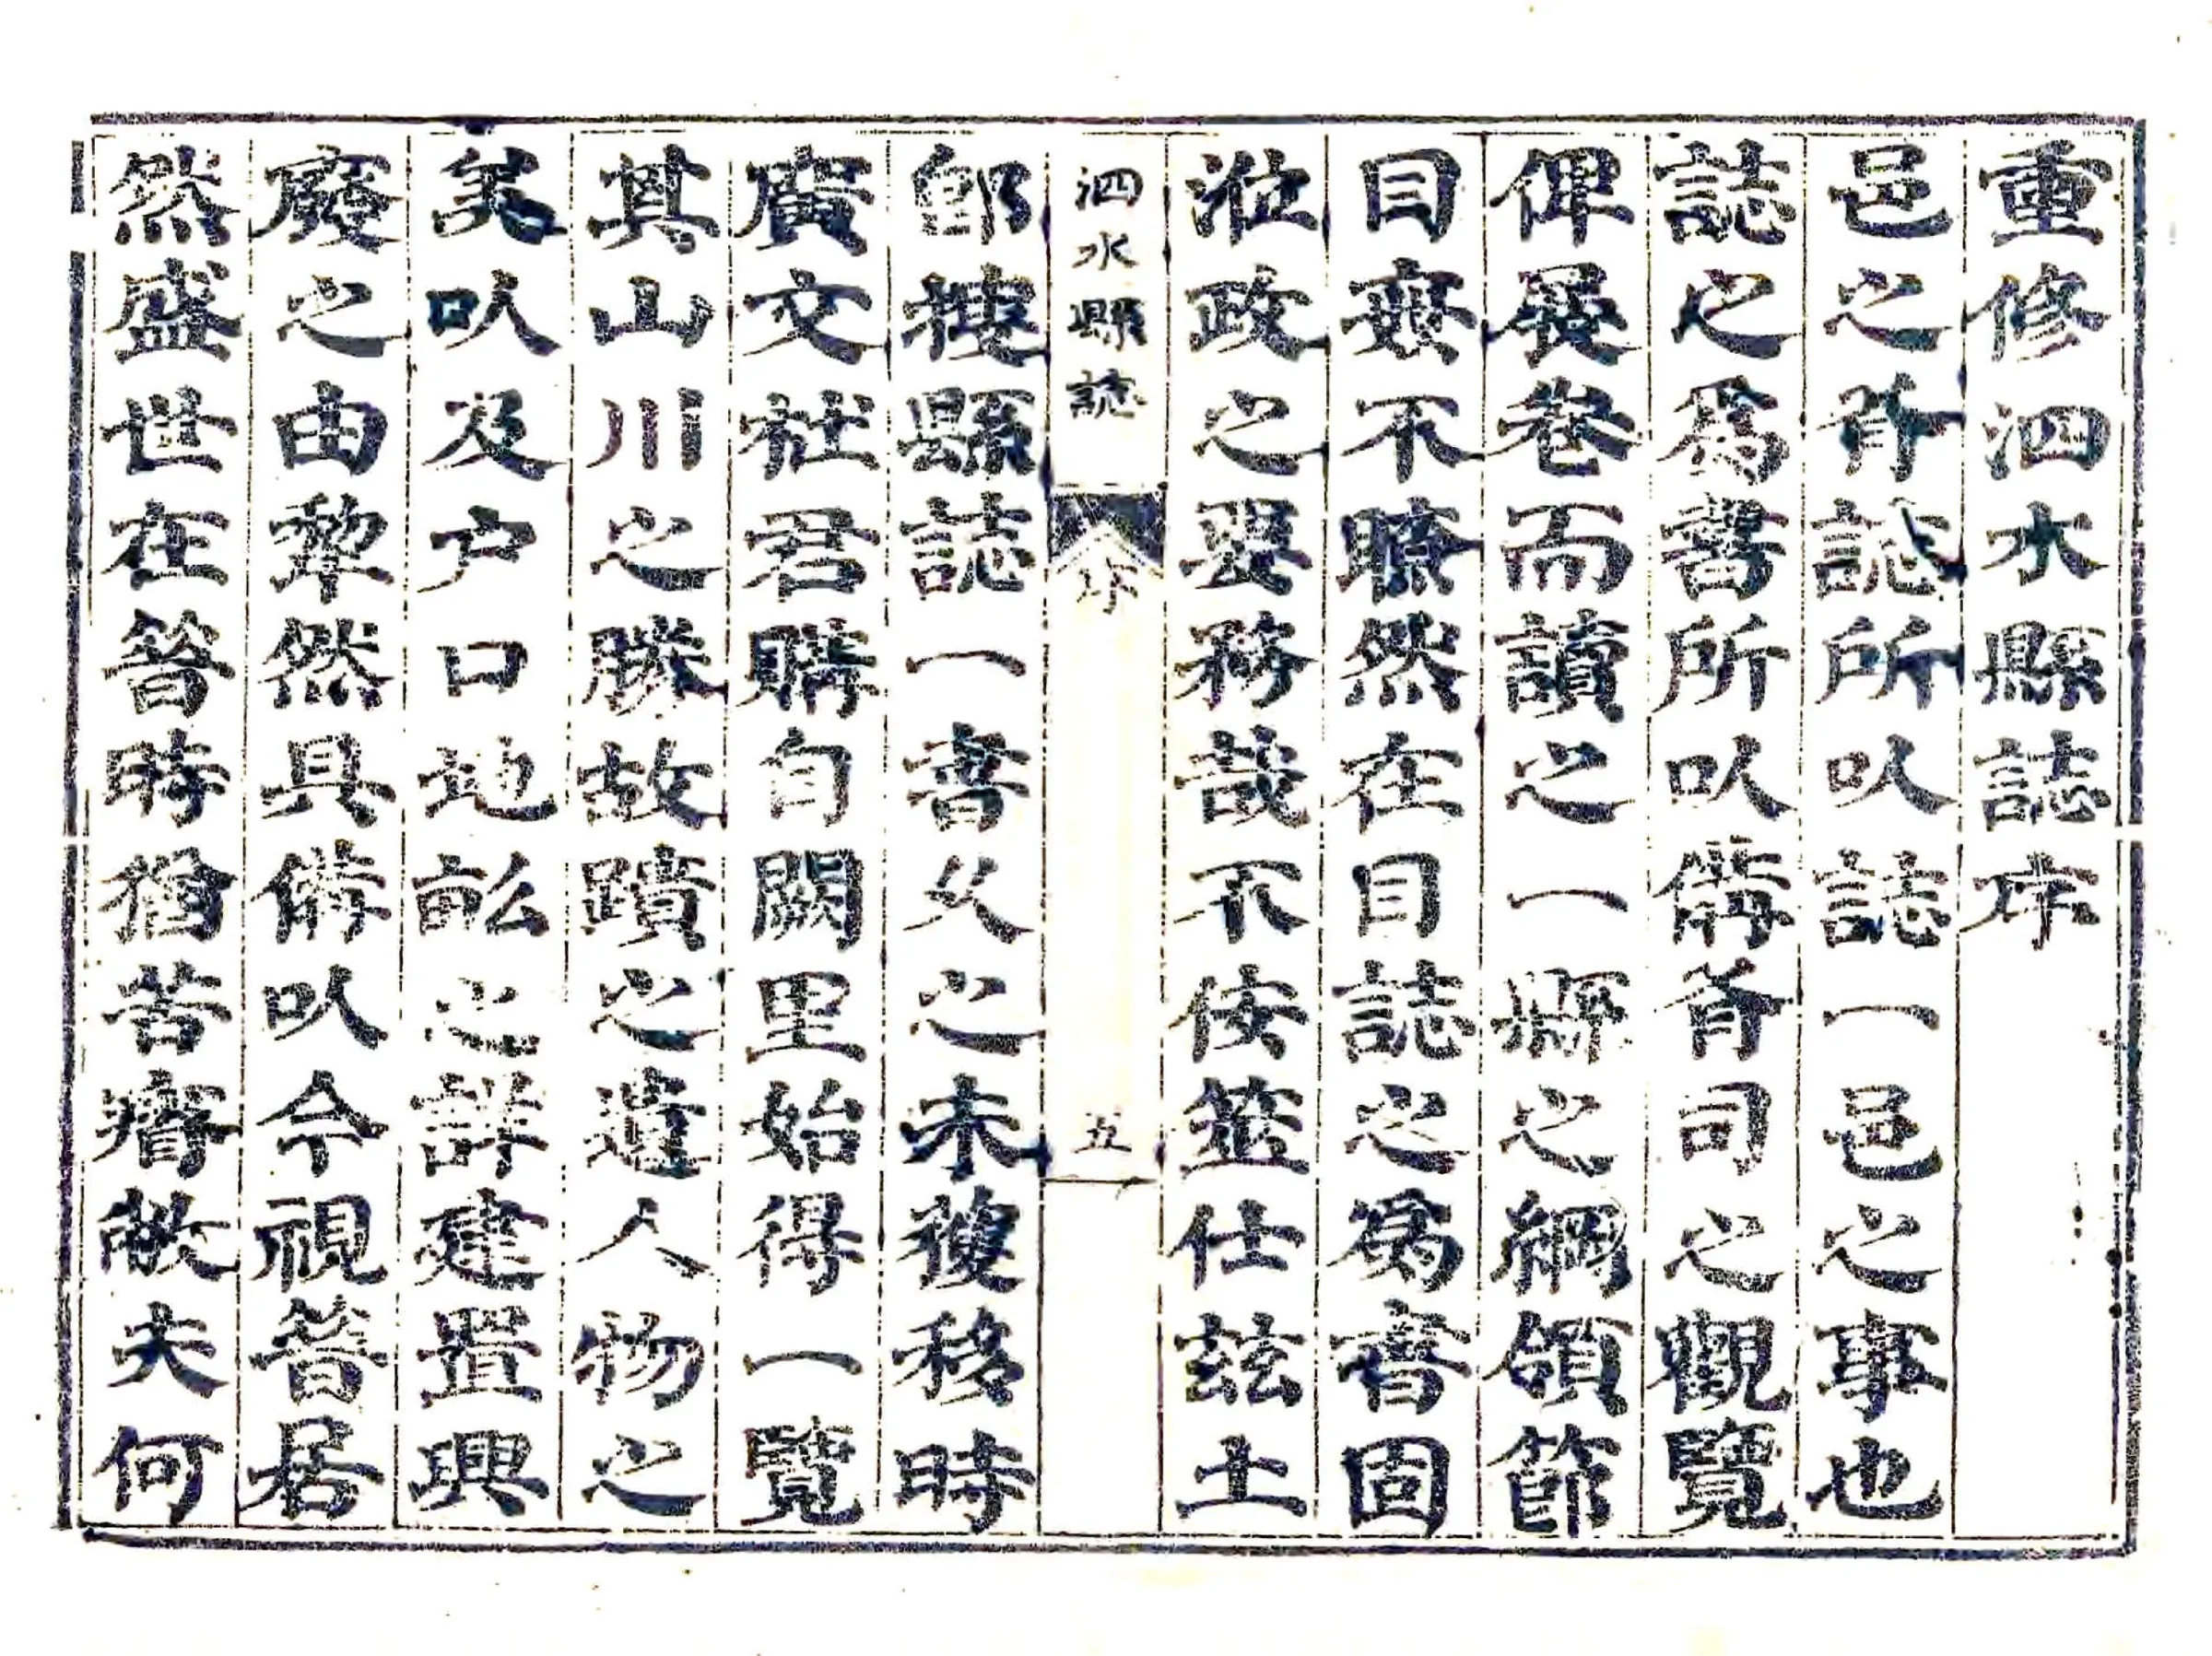 重修泗水縣誌序
邑之有誌所以誌一邑之事也
誌之爲書所以備有司之觀覽
俾展卷而讀之一縣之綱領節
目燦不瞭然在目誌之爲書固
涖政之要務哉不佞筮仕茲土
泗水縣誌
序
五
郎搜縣誌一書久之未獲移時
廣文社君購自闕里始得一覽
其山川之勝故蹟之遺人物之
美以及戶口地畝之詳建置興
廢之由犂然具備以今視昔居
然盛世在昔時猶苦瘠敝夫何